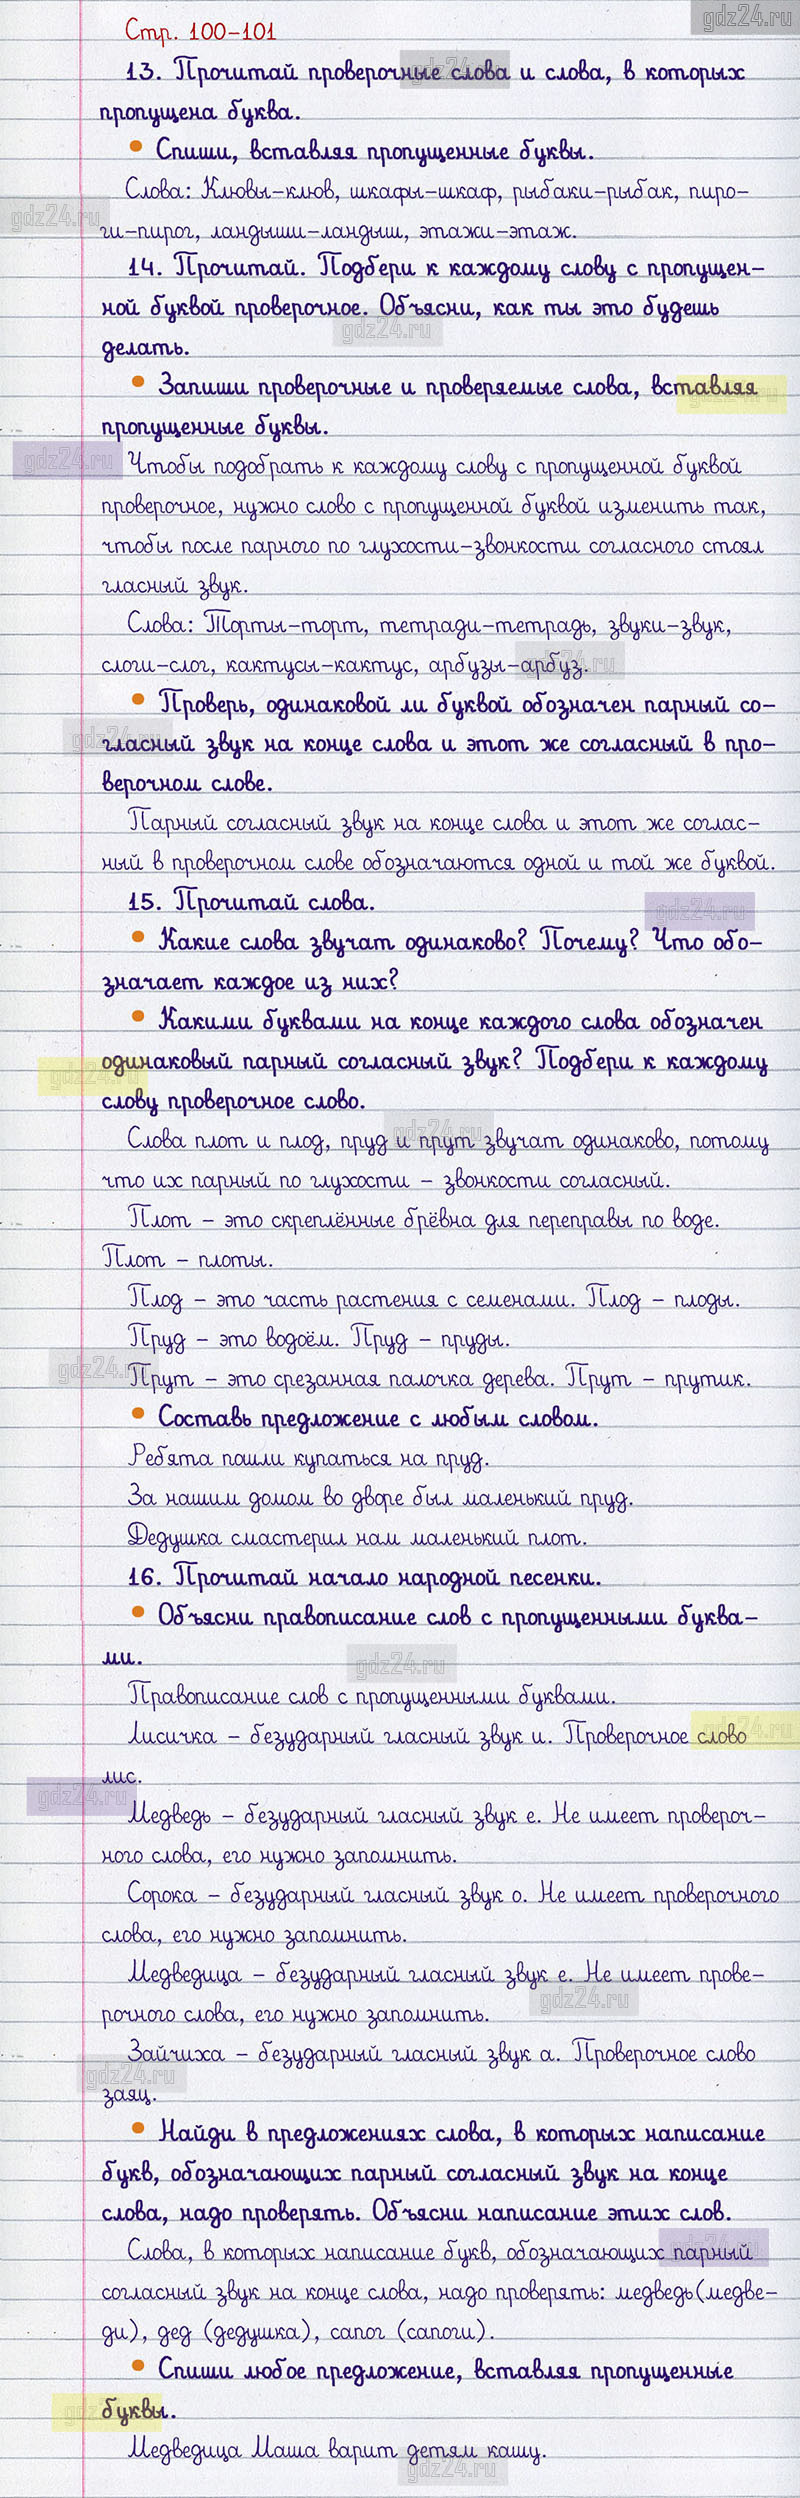 gdz24.ru
Стр. 100-101
13. Прочитай проверочные слова и слова, в которых
пропущена буква.
• Спиши, вставляя пропущенные буквы.
Слова: Клювы-клюв, шкафы-шкаф, рыбаки-рыбак, пиро-
ги-пирог, ландыши-ландыш, этажи-этаж.
14. Прочитай. Подбери к каждому слову с пропущен-
ной буквой проверочное. Объясни, как ты это будешь
делать.
• Запиши проверочные и проверяемые слова, вставляя
пропущенные буквы.
Чтобы подобрать к каждому слову с пропущенной буквой
проверочное, нужно слово с пропущенной буквой изменить так,
чтобы после парного по глухости-звонкости согласного стоял
гласный звук.
Слова: Торты-торт, тетради-тетрадь, звуки-звук,
слоги-слог, кактусы-кактус, арбузы-арбуз.
• Проверь, одинаковой ли буквой обозначен парный со-
гласный звук на конце слова и этот же согласный в про-
верочном слове.
Парный согласный звук на конце слова и этот же соглас-
ный в проверочном слове обозначаются одной и той же буквой.
15. Прочитай слова.
• Какие слова звучат одинаково? Почему? Что обо-
значает каждое из них?
• Какими буквами на конце каждого слова обозначен
одинаковый парный согласный звук? Подбери к каждому
слову проверочное слово.
Слова плот и плод, пруд и прут звучат одинаково, потому
что их парный по глухости – звонкости согласный.
Плот – это скреплённые брёвна для переправы по воде.
Плот – плоты.
Плод – это часть растения с семенами. Плод – плоды.
Пруд – это водоём. Пруд – пруды.
Прут – это срезанная палочка дерева. Прут – прутик.
• Составь предложение с любым словом.
Ребята пошли купаться на пруд.
За нашим домом во дворе был маленький пруд.
Дедушка смастерил нам маленький плот.
16. Прочитай начало народной песенки.
• Объясни правописание слов с пропущенными буква-
ми.
Правописание слов с пропущенными буквами.
Лисичка – безударный гласный звук и. Проверочное слово
лис.
Медведь – безударный гласный звук е. Не имеет провероч-
ного слова, его нужно запомнить.
Сорока – безударный гласный звук о. Не имеет проверочного
слова, его нужно запомнить.
Медведица – безударный гласный звук е. Не имеет прове-
рочного слова, его нужно запомнить.
Зайчиха – безударный гласный звук а. Проверочное слово
заяц.
• Найди в предложениях слова, в которых написание
букв, обозначающих парный согласный звук на конце
слова, надо проверять. Объясни написание этих слов.
Слова, в которых написание букв, обозначающих парный
согласный звук на конце слова, надо проверять: медведь(медве-
ди), дед (дедушка), сапог (сапоги).
• Спиши любое предложение, вставляя пропущенные
буквы.
Медведица Маша варит детям кашу.